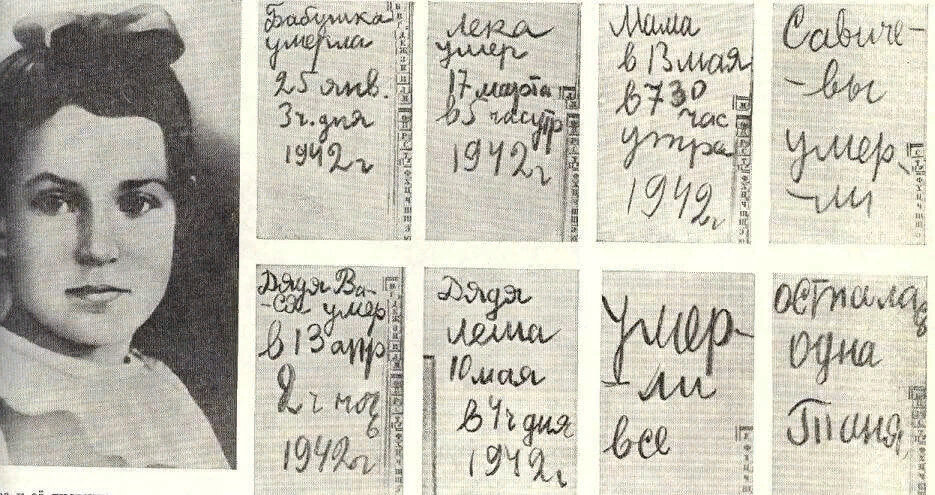 Бабушка
умерла
25 янв.
3 ч. дня
1942 г
Лека
умер
17 марта
в 5 час утр
1942 г
Мама
в 13 мая
в 7 30
час
утра
1942 г
Савиче-
-вы
умер
-ли
Дядя Ва-
-ся умер
в 13 апр
2 ч ноч
1942 г
Дядя
Леша
10 мая
в 4 ч дня
1942 г
Умер-
-ли
все
Осталась
одна
Таня